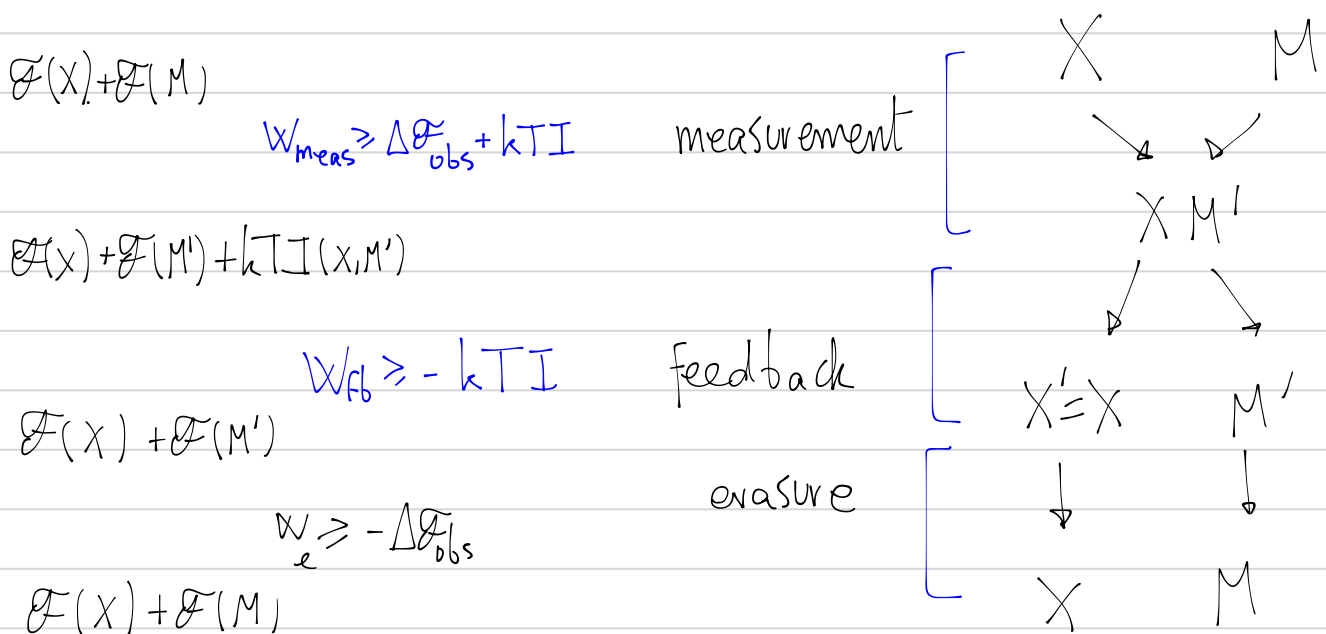 X M
ℱ(X)+ℱ(M)
W_meas ≥ Δℱ_obs + kTI measurement
X M'
ℱ(X)+ℱ(M')+kTI(X,M')
W_fb ≥ - kTI feedback
X'=X M'
ℱ(X)+ℱ(M')
erasure
W_e ≥ -Δℱ_obs
X M
ℱ(X)+ℱ(M)